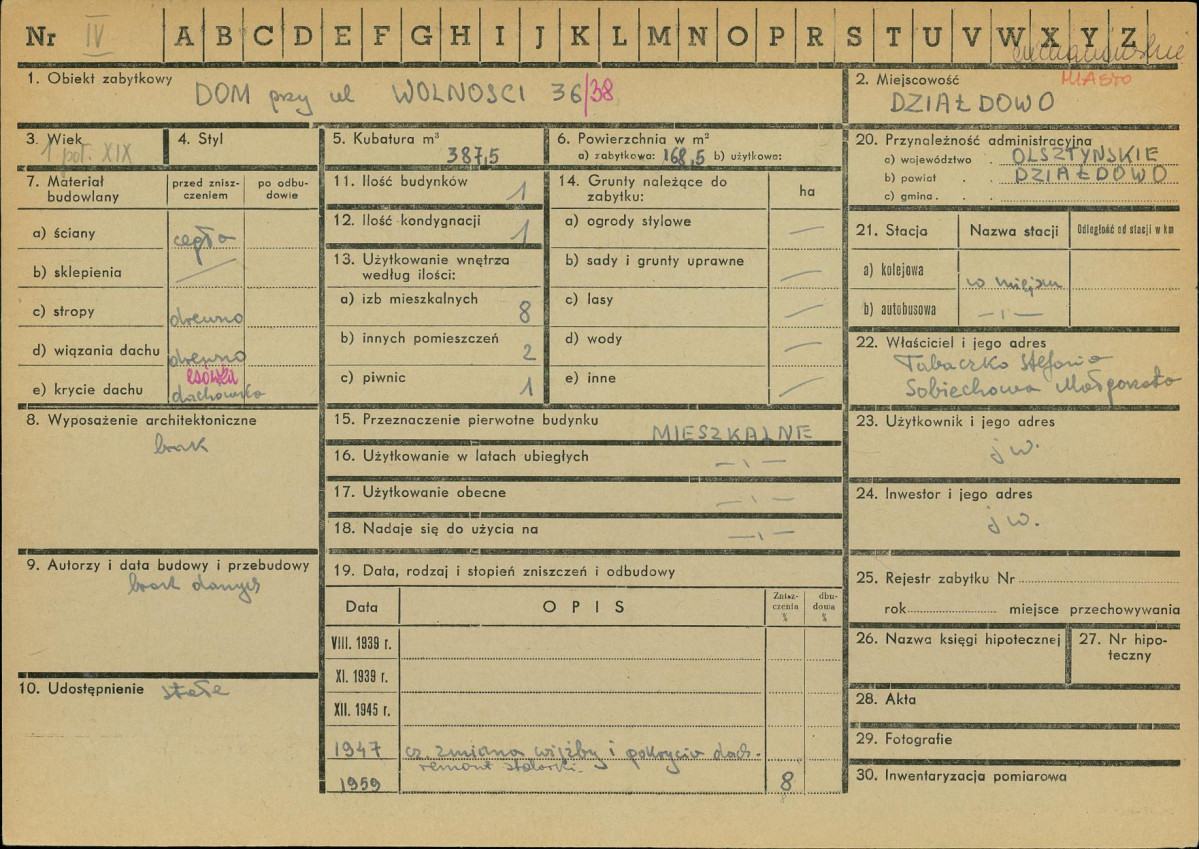 Nr IV A B C D E F G H I J K L M N O P R S T U V W X Y Z
1. Obiekt zabytkowy
DOM przy ul WOLNOSCI 36/38
2. Miejscowość MIASTO
DZIAŁDOWO
3. Wiek
1 poł. XIX
4. Styl
5. Kubatura m³
387,5
6. Powierzchnia w m²
a) zabytkowa: 168,5 b) użytkowa:
20. Przynależność administracyjna
a) województwo . OLSZTYŃSKIE
b) powiat . . DZIAŁDOWO
c) gmina . .
7. Materiał budowlany
przed zniszczeniem
po odbudowie
a) ściany cegła
b) sklepienia —
c) stropy drewno
d) wiązania dachu drewno
esówka
e) krycie dachu dachówka
11. Ilość budynków 1
12. Ilość kondygnacji 1
13. Użytkowanie wnętrza
według ilości:
a) izb mieszkalnych 8
b) innych pomieszczeń 2
c) piwnic 1
14. Grunty należące do
zabytku:
ha
a) ogrody stylowe —
b) sady i grunty uprawne —
c) lasy —
d) wody —
e) inne —
21. Stacja Nazwa stacji Odległość od stacji w km
a) kolejowa w miejscu
b) autobusowa — ı —
22. Właściciel i jego adres
Tabaczko Stefania
Sobiechowa Małgorzata
8. Wyposażenie architektoniczne
brak
15. Przeznaczenie pierwotne budynku
MIESZKALNE
16. Użytkowanie w latach ubiegłych — ı —
17. Użytkowanie obecne — ı —
18. Nadaje się do użycia na — ı —
23. Użytkownik i jego adres
j w.
24. Inwestor i jego adres
j w.
9. Autorzy i data budowy i przebudowy
brak danych
19. Data, rodzaj i stopień zniszczeń i odbudowy
Data OPIS Zniszczenia % dbudowa %
VIII. 1939 r.
XI. 1939 r.
XII. 1945 r.
1947 cz. zmiana więźby i pokrycia dach-
remont stolarki.
1959 8
25. Rejestr zabytku Nr
rok miejsce przechowywania
26. Nazwa księgi hipotecznej
27. Nr hipoteczny
10. Udostępnienie stałe
28. Akta
29. Fotografie
30. Inwentaryzacja pomiarowa